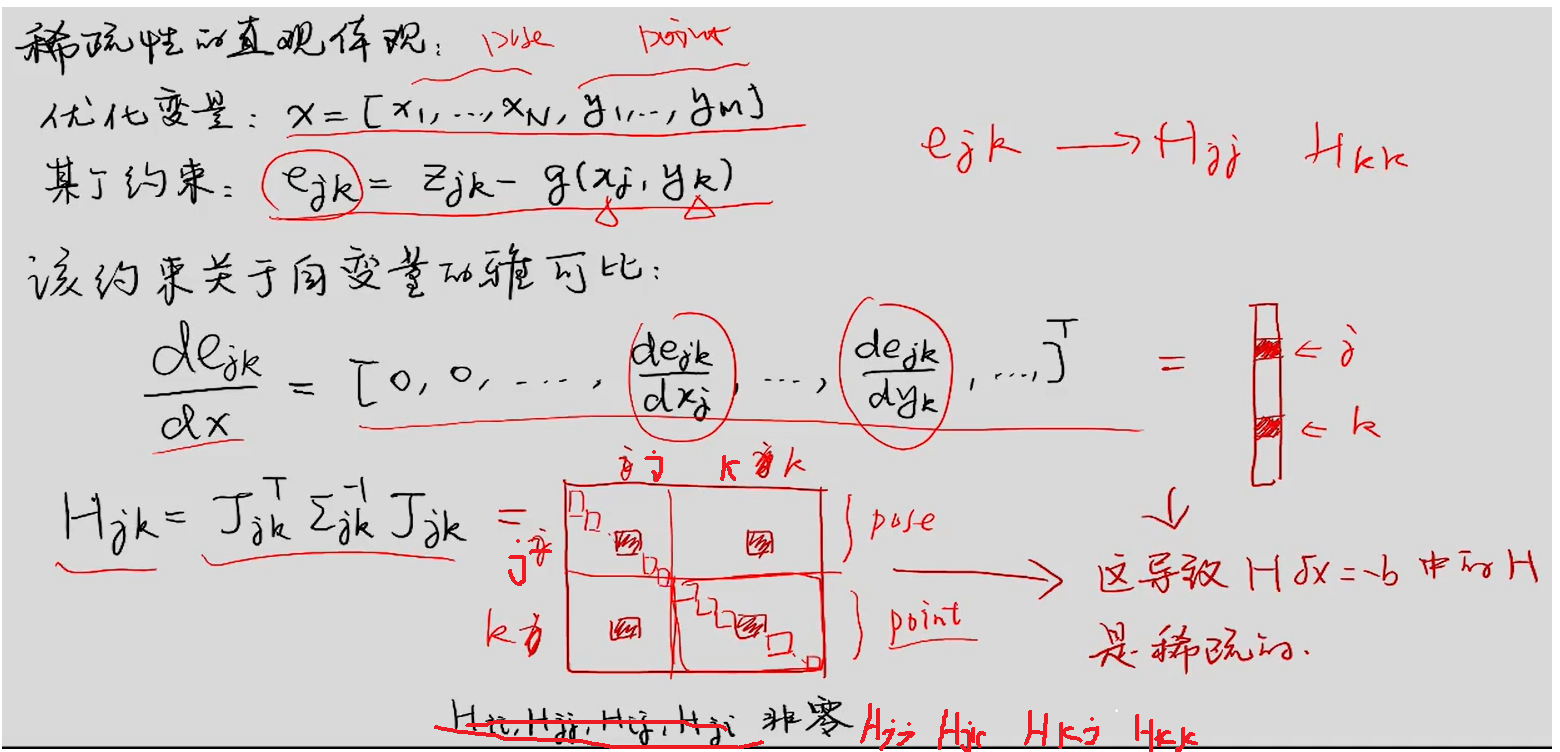 稀疏性的直观体现： pose point
优化变量： x = [x₁, ..., x_N, y₁, ..., y_M]
某个约束： e_jk = z_jk - g(x_j, y_k)
e_jk → H_jj H_kk
该约束关于自变量的雅可比：
de_jk/dx = [0, 0, ...., de_jk/dx_j, ..., de_jk/dy_k, ...,]ᵀ =
← j
← k
j k k
H_jk = J_jkᵀ Σ_jk⁻¹ J_jk =
j
k
pose
point
这导致 H δx = -b 中的 H
是稀疏的.
H_ii, H_jj, H_ij, H_ji 非零 H_jj H_jk H_kj H_kk